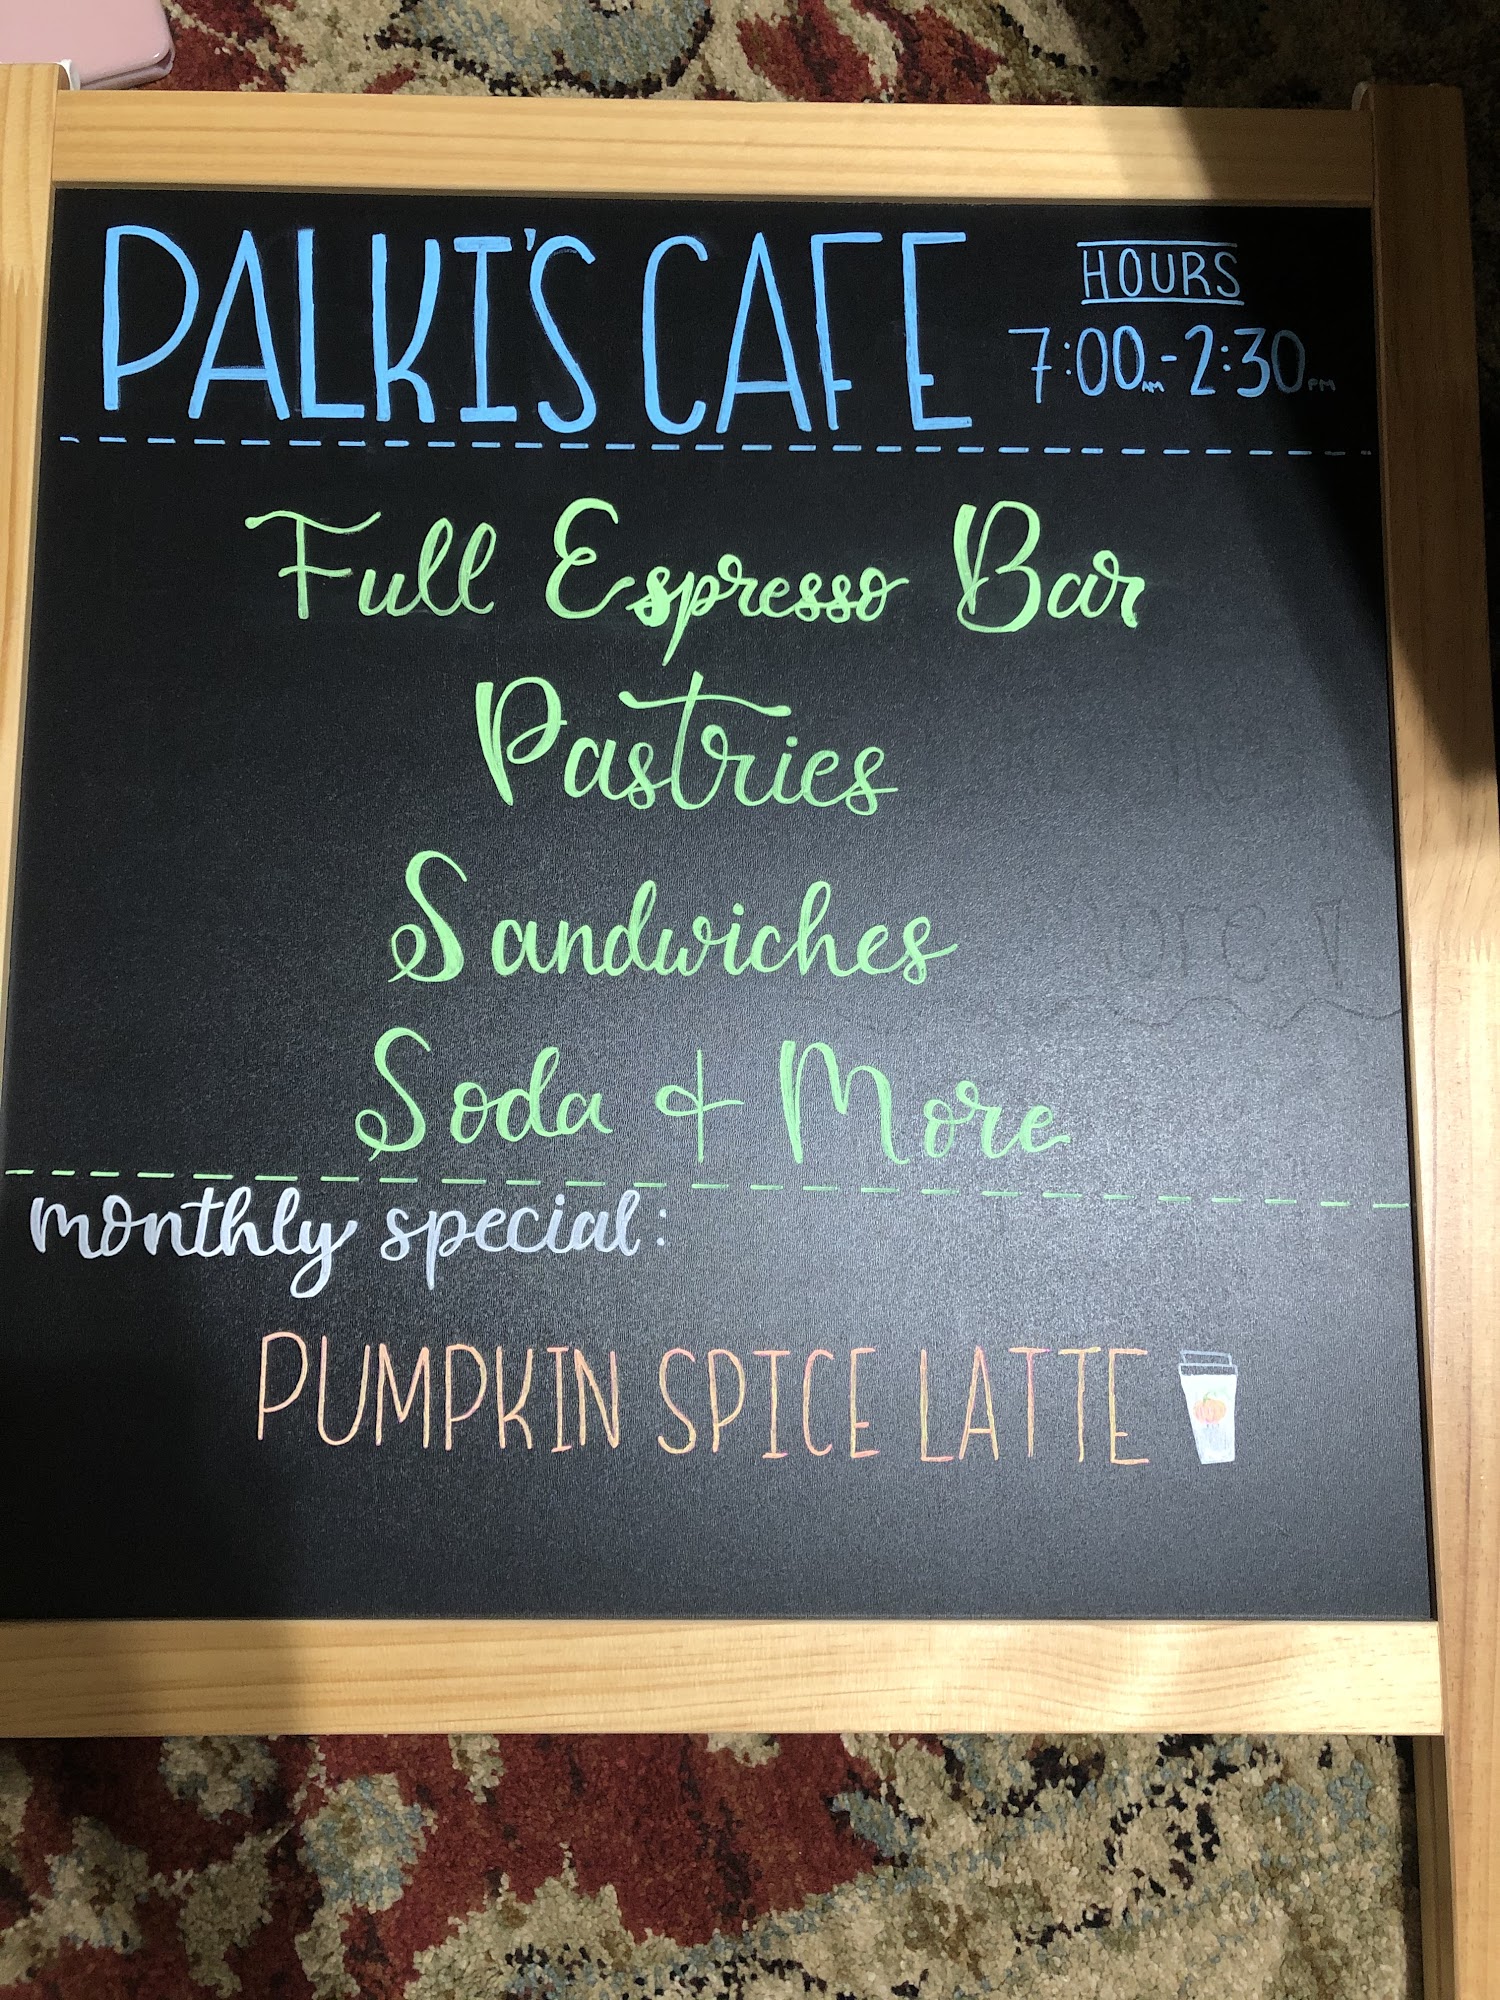 PALKI'S CAFE
HOURS
7:00AM-2:30PM
Full Espresso Bar
Pastries
Sandwiches
Soda & More
monthly special:
PUMPKIN SPICE LATTE